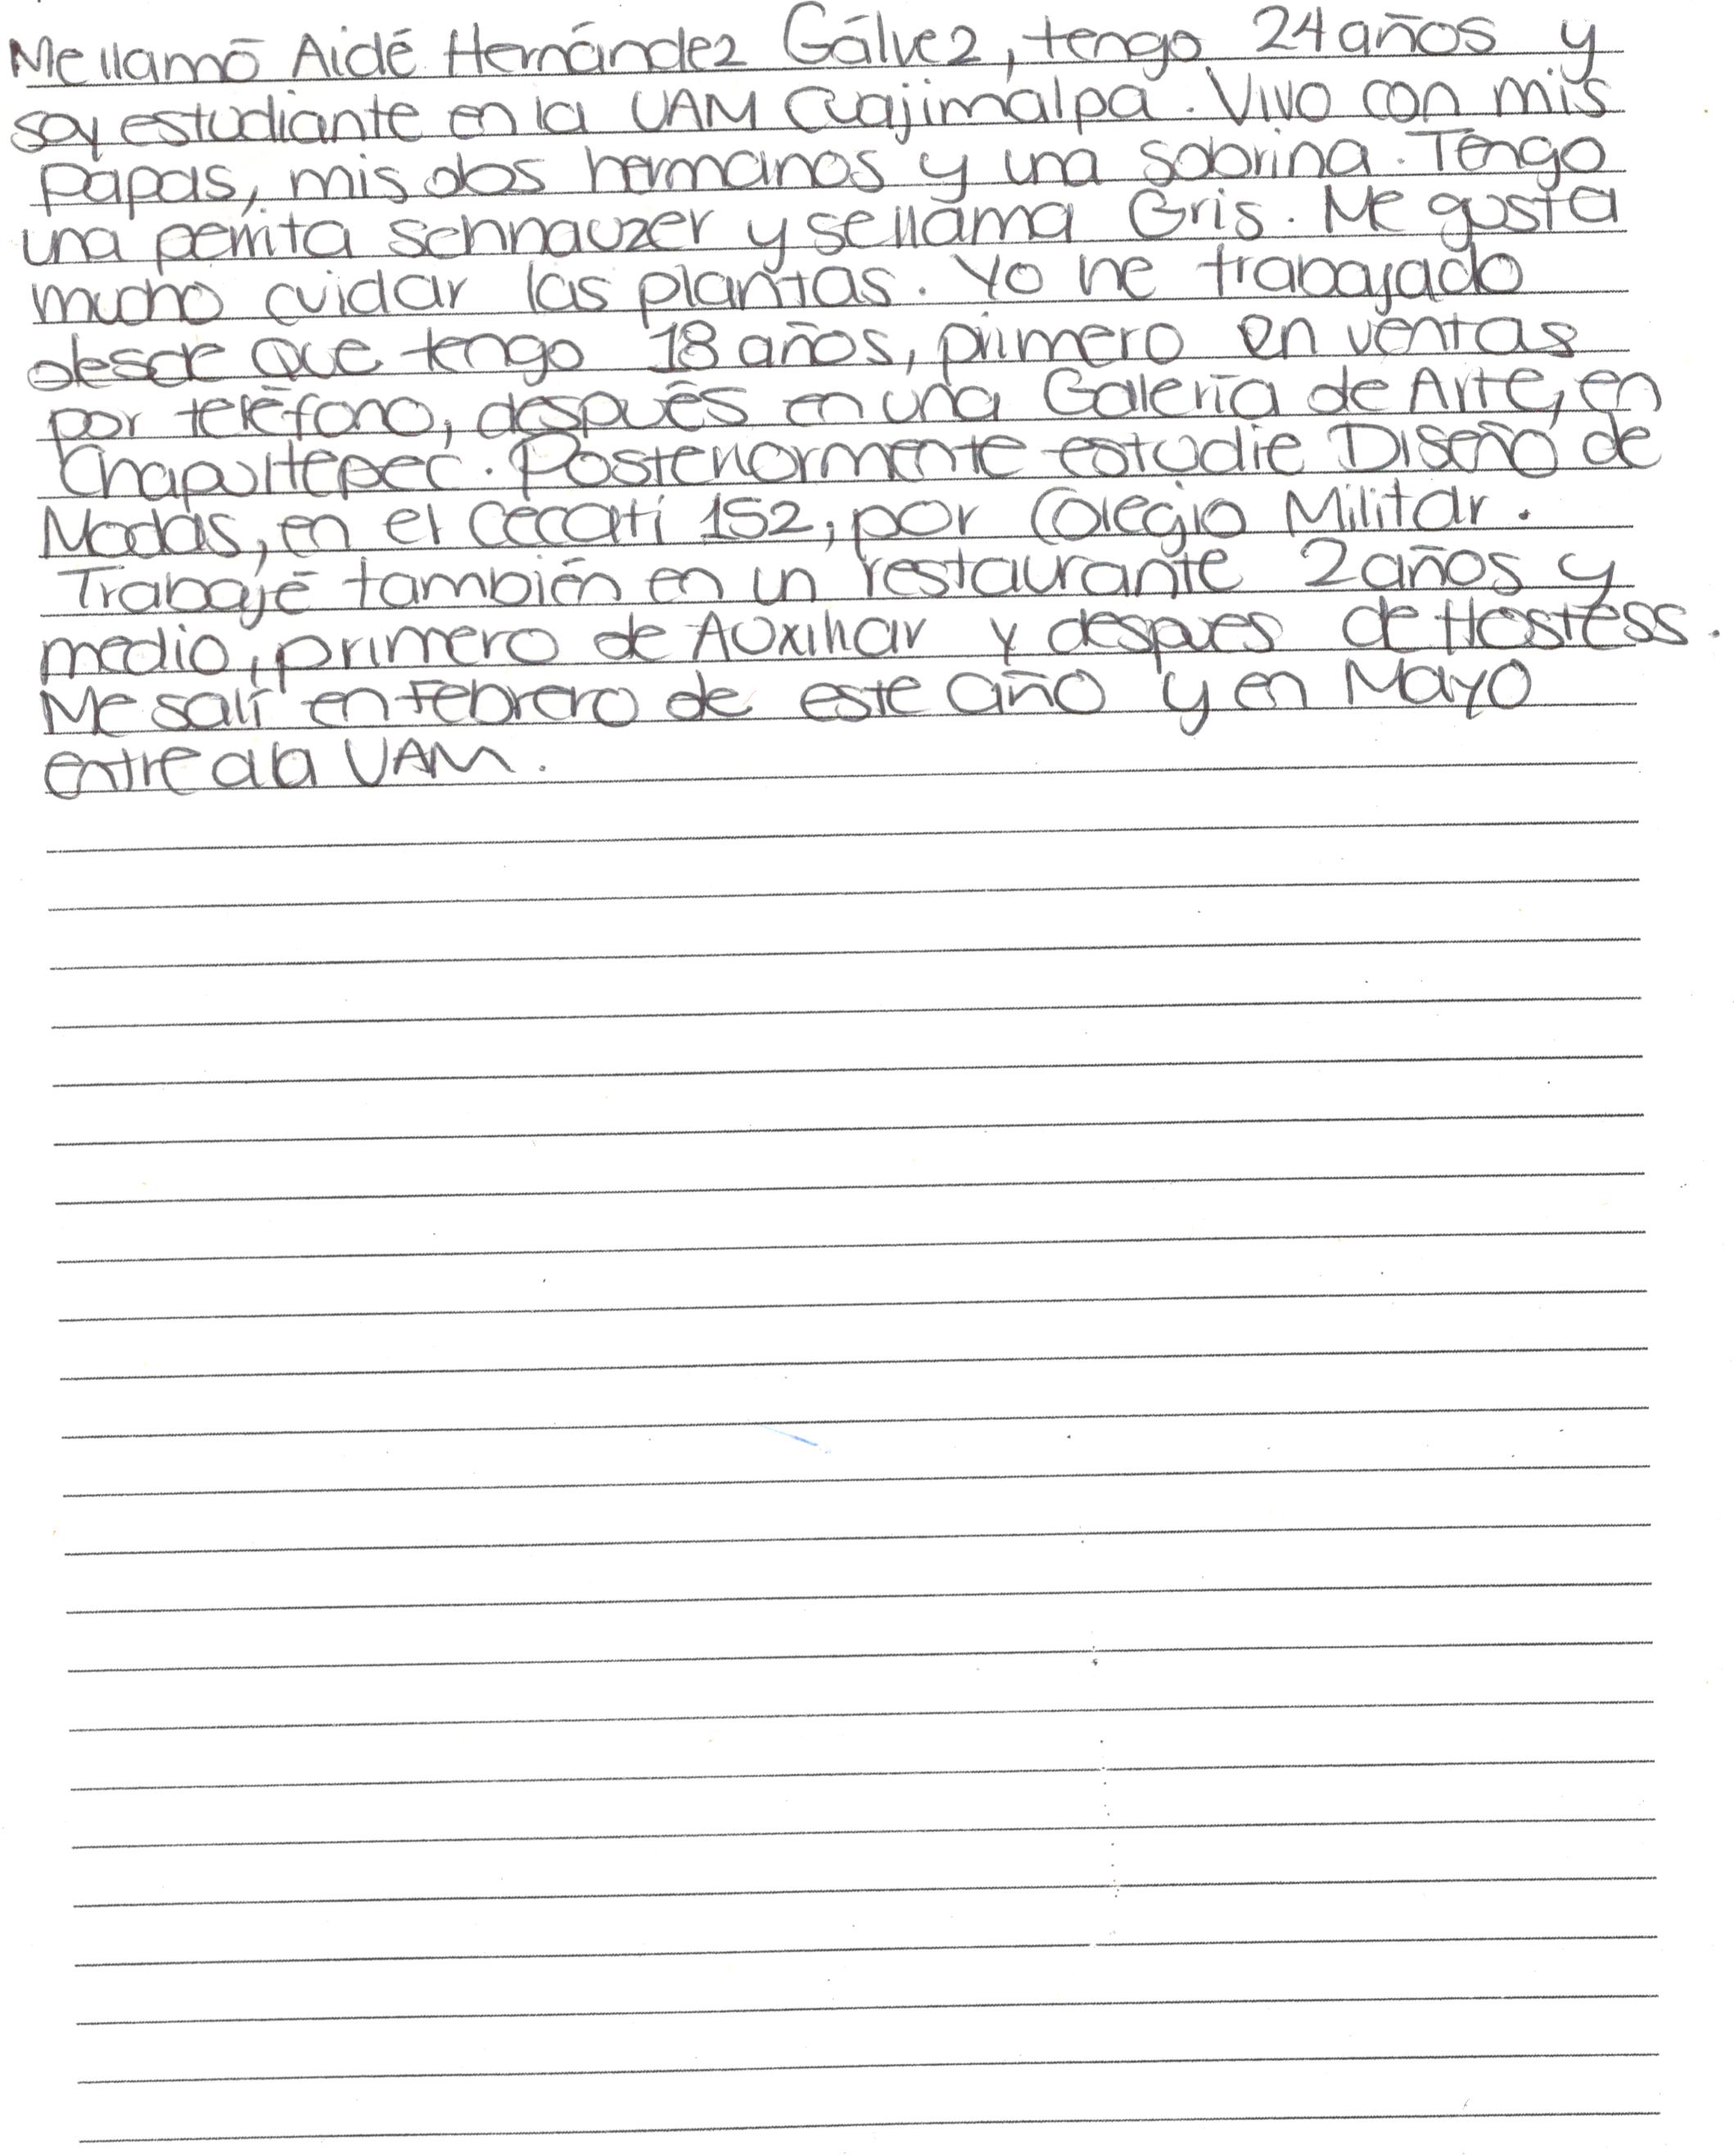 Me llamó Aidé Hernández Gálvez, tengo 24 años y
soy estudiante en la UAM Cuajimalpa. Vivo con mis
papas, mis dos hermanos y una sobrina. Tengo
una perrita schnauzer y se llama Gris. Me gusta
mucho cuidar las plantas. Yo he trabajado
desde que tengo 18 años, primero en ventas
por teléfono, después en una Galería de Arte, en
Chapultepec. Posteriormente estudie Diseño de
Modas, en el cecati 152, por Colegio Militar.
Trabajé también en un restaurante 2 años y
medio, primero de Auxiliar y despues de Hostess.
Me salí en Febrero de este año y en Mayo
entre a la UAM.